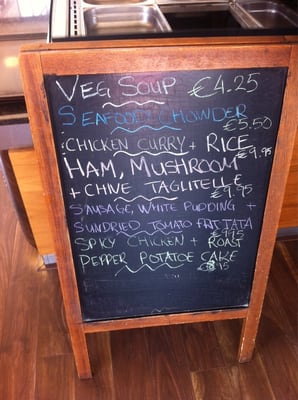 VEG SOUP €4.25
SEAFOOD CHOWDER
€5.50
CHICKEN CURRY + RICE
€9.95
HAM, MUSHROOM
+ CHIVE TAGLITELLE
€9.95
SAUSAGE, WHITE PUDDING +
SUNDRIED TOMATO FRITTATA
€9.95
SPICY CHICKEN + ROAST
PEPPER POTATOE CAKE